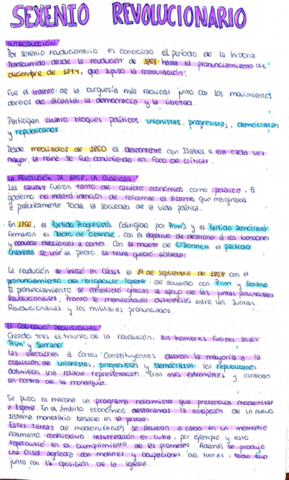 SEXENIO REVOLUCIONARIO
INTRODUCCIÓN
Por sexenio revolucionario es conocido el período de la historia
transcurrido desde la revolución de 1868 hasta el pronunciamiento de
diciembre de 1874, que supuso la restauración.
Fue el intento de la burguesía más radical junto con los movimientos
obreros de alcanzar la democracia y la libertad.
Participan cuatro bloques políticos, unionistas, progresistas, demócratas
y republicanos.
Desde mediados de 1860 el descontento con Isabel II era cada vez
mayor, la reina se fue convirtiendo en foco de críticas.
LA REVOLUCIÓN DE 1868, LA GLORIOSA
Las causas fueron tanto de carácter económico como político. El
gobierno no mostró intención de reformar el sistema que marginaba
a prácticamente toda la sociedad de la vida política.
En 1866, el Partido Progresista (dirigido por Prim) y el Partido Demócrata
firmaron el Pacto de Ostende, con el objetivo de destronar a los borbones
y convocar elecciones a cortes. Con la muerte de O'Donnell el partido
unionista se unió al pacto. La reina quedó aislada.
La revolución se inició en Cádiz el 19 de septiembre de 1868 con el
pronunciamiento del brigadier Topete de acuerdo con Prim y Serrano.
El pronunciamiento se consolidó gracias al apoyo de las juntas provinciales
revolucionarias. Pronto se manifestaron diferencias entre las Juntas
Revolucionarias y los militares pronunciados.
EL GOBIERNO PROVISIONAL
Creado tras el triunfo de la revolución. Sus hombres fuertes serán
Prim y Serrano.
Las elecciones a Cortes Constituyentes dieron la mayoría a la
coalición de unionistas, progresistas y demócratas. Los republicanos
obtuvieron una notable representación. Eran más extremistas y estaban
en contra de la monarquía.
Se puso en marcha un programa reformista que pretendía modernizar
a España. En el ámbito económico destacamos la adopción de un nuevo
sistema monetario basado en la peseta.
Estas tareas de modernización se llevaron a cabo en un momento
realmente conflictivo: insurrección en Cuba, por ejemplo y esto
repercutió en el cumplimiento de las promesas. Además se produjo
una crisis agraria con motines y ocupaciones de tierras, todo ello
junto con la oposición de la iglesia.